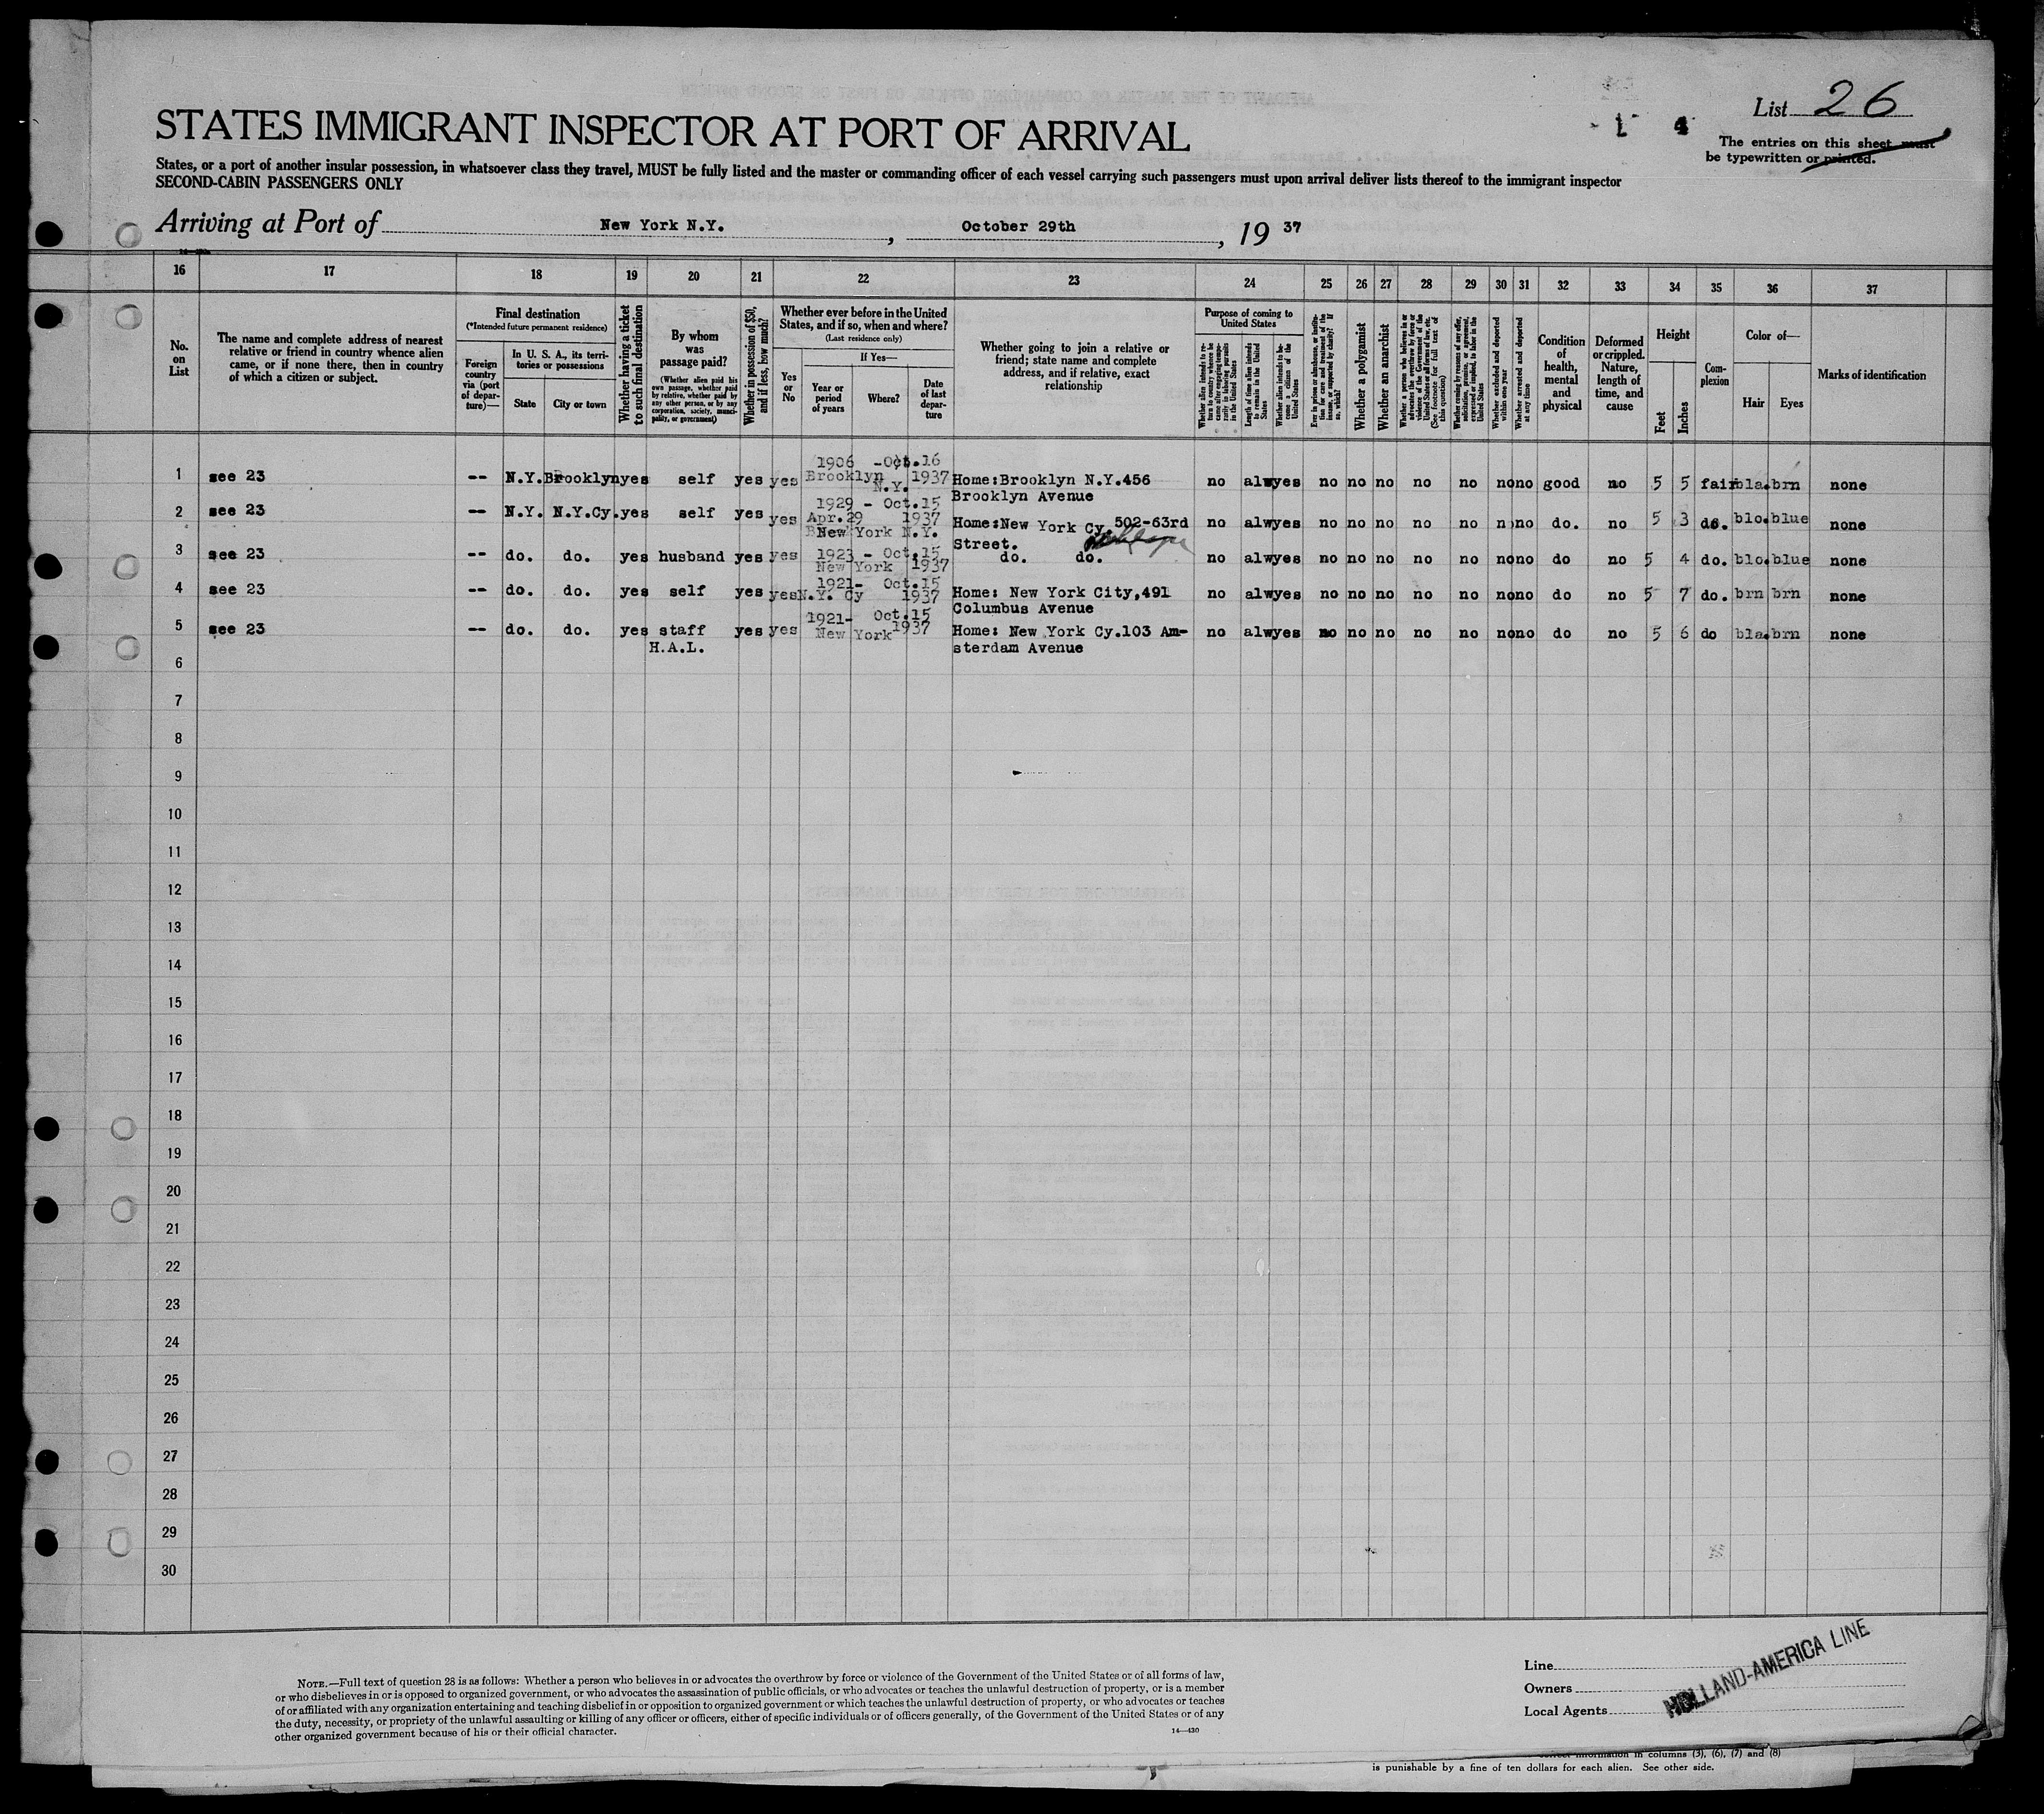 List 26
L 4
The entries on this sheet must
be typewritten or printed.
STATES IMMIGRANT INSPECTOR AT PORT OF ARRIVAL
States, or a port of another insular possession, in whatsoever class they travel, MUST be fully listed and the master or commanding officer of each vessel carrying such passengers must upon arrival deliver lists thereof to the immigrant inspector
SECOND-CABIN PASSENGERS ONLY
Arriving at Port of New York N.Y., October 29th, 19 37
16 17 18 19 20 21 22 23 24 25 26 27 28 29 30 31 32 33 34 35 36 37
No. on List
The name and complete address of nearest
relative or friend in country whence alien
came, or if none there, then in country
of which a citizen or subject.
Final destination
(*Intended future permanent residence)
Foreign country via (port of departure)—
In U. S. A., its territories or possessions
State
City or town
Whether having a ticket to such final destination
By whom was passage paid?
(Whether alien paid his own passage, whether paid by relative, whether paid by any other person, or by any corporation, society, municipality, or government)
Whether in possession of $50, and if less, how much?
Whether ever before in the United
States, and if so, when and where?
(Last residence only)
Yes or No
If Yes—
Year or period of years
Where?
Date of last departure
Whether going to join a relative or
friend; state name and complete
address, and if relative, exact
relationship
Purpose of coming to United States
Whether alien intends to return to country whence he came after engaging temporarily in laboring pursuits in the United States
Length of time alien intends to remain in the United States
Whether alien intends to become a citizen of the United States
Ever in prison or almshouse, or institution for care and treatment of the insane, or supported by charity? If so, which?
Whether a polygamist
Whether an anarchist
(See footnote for full text of this question)
Whether coming by reason of any offer, solicitation, promise, or agreement, expressed or implied, to labor in the United States
Whether excluded and deported within one year
Whether arrested and deported at any time
Condition of health, mental and physical
Deformed or crippled. Nature, length of time, and cause
Height
Feet
Inches
Complexion
Color of—
Hair
Eyes
Marks of identification
1 see 23 -- N.Y. Brooklyn yes self yes yes 1906 - Oct.16 Brooklyn N.Y. 1937 Home:Brooklyn N.Y.456 Brooklyn Avenue no alw yes no no no no no no no good no 5 5 fair bla. brn none
2 see 23 -- N.Y. N.Y.Cy. yes self yes yes 1929 - Oct.15 Apr.29 1937 New York N.Y. Home:New York Cy.502-63rd Street. no alw yes no no no no no n no do. no 5 3 do. blo. blue none
3 see 23 -- do. do. yes husband yes yes 1923 - Oct.15 New York 1937 do. do. no alw yes no no no no no no no do no 5 4 do. blo. blue none
4 see 23 -- do. do. yes self yes yes 1921- Oct.15 N.Y. Cy 1937 Home: New York City,491 Columbus Avenue no alw yes no no no no no no no do no 5 7 do. brn brn none
5 see 23 -- do. do. yes staff H.A.L. yes yes 1921- Oct.15 New York 1937 Home: New York Cy.103 Amsterdam Avenue no alw yes no no no no no no no do no 5 6 do bla. brn none
6
7
8
9
10
11
12
13
14
15
16
17
18
19
20
21
22
23
24
25
26
27
28
29
30
NOTE.—Full text of question 28 is as follows: Whether a person who believes in or advocates the overthrow by force or violence of the Government of the United States or of all forms of law,
or who disbelieves in or is opposed to organized government, or who advocates the assassination of public officials, or who advocates or teaches the unlawful destruction of property, or is a member
of or affiliated with any organization entertaining and teaching disbelief in or opposition to organized government or which teaches the unlawful destruction of property, or who advocates or teaches
the duty, necessity, or propriety of the unlawful assaulting or killing of any officer or officers, either of specific individuals or of officers generally, of the Government of the United States or of any
other organized government because of his or their official character.
14—430
Line
Owners
Local Agents
HOLLAND-AMERICA LINE
correct information in columns (3), (6), (7) and (8)
is punishable by a fine of ten dollars for each alien. See other side.